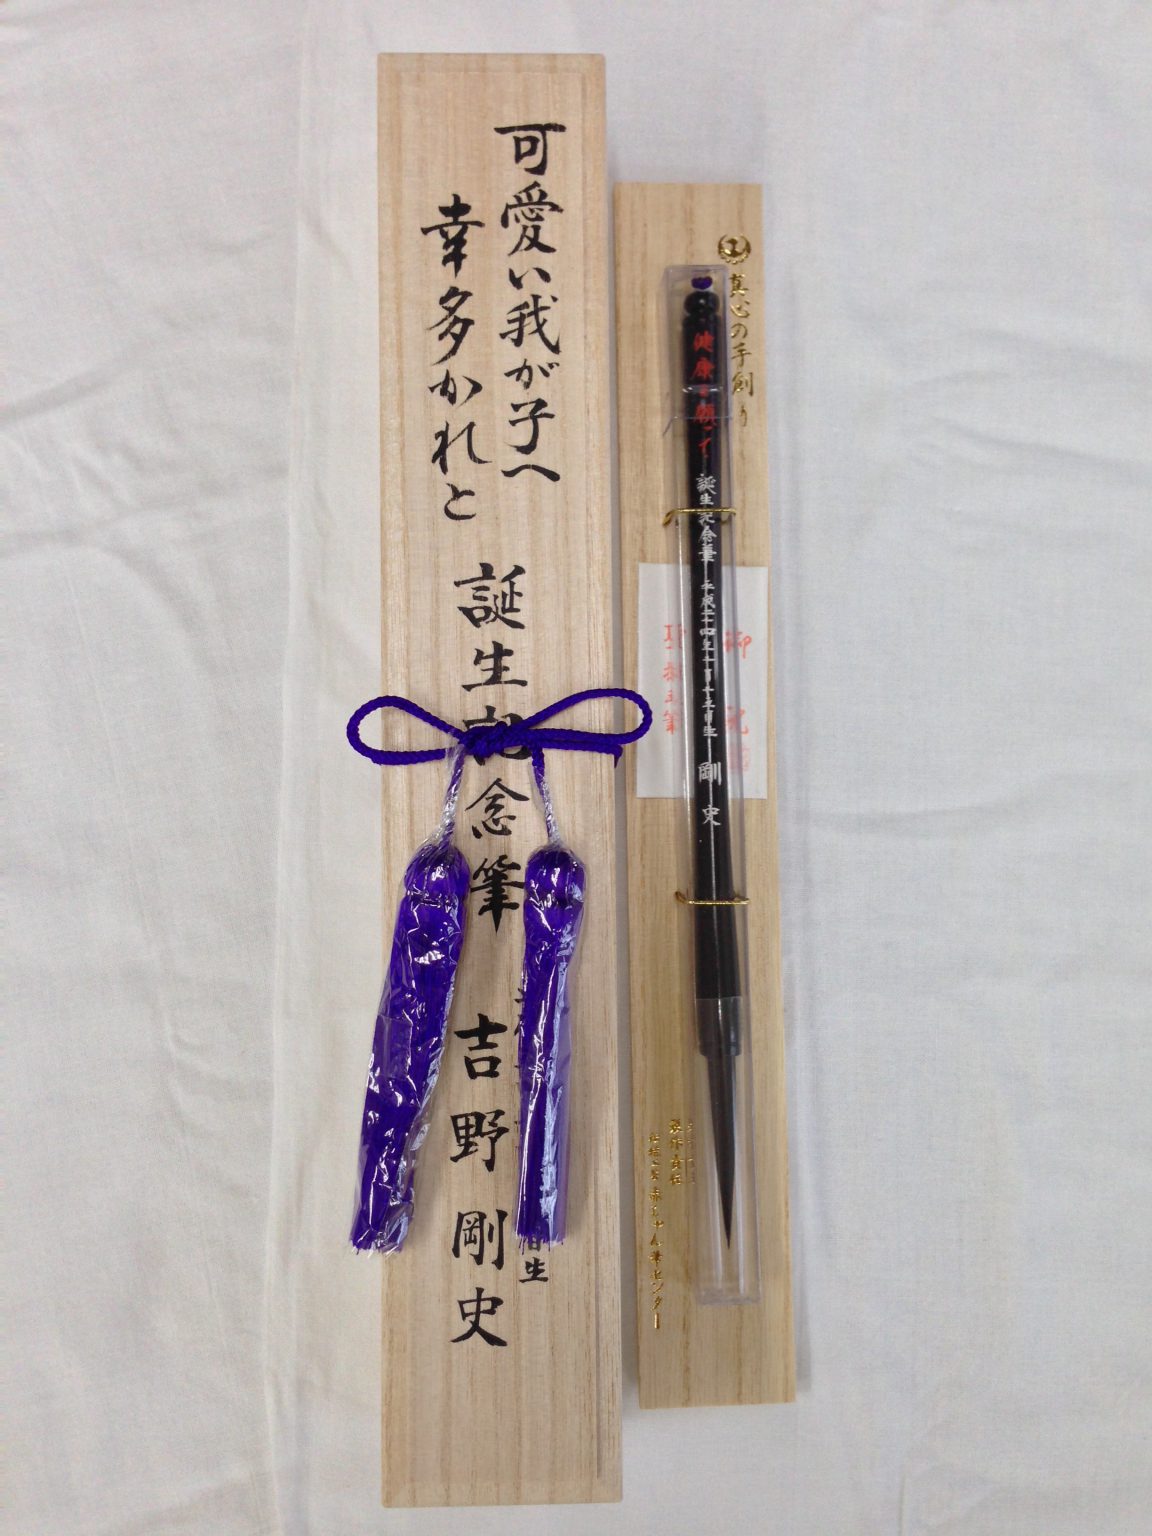 可愛い我が子へ
幸多かれと
誕生記念筆
吉野 剛史
日生
真心の手創り
健康を願って
誕生記念筆 平成二十四年十月十五日生 剛史
御祝
製作責任
赤ちゃん筆センター